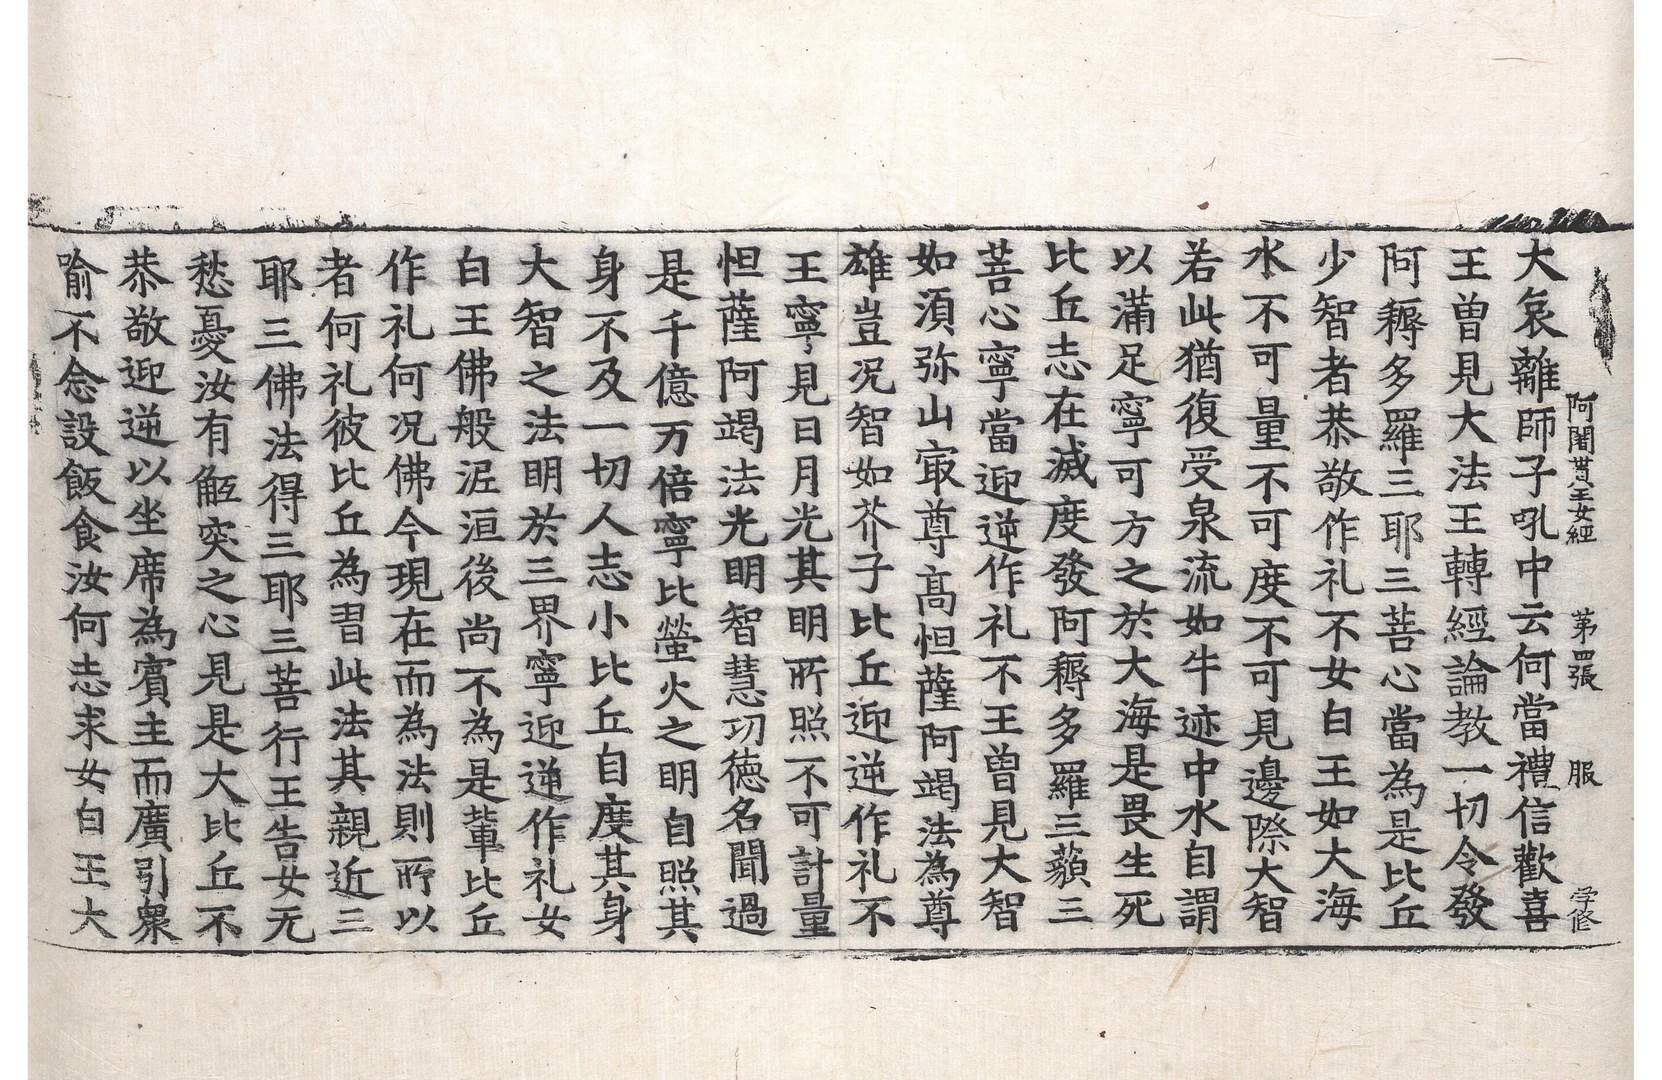 阿闍貰王女經 第四張 服 学修
大哀離師子吼中云何當禮信歡喜
王曽見大法王轉經論教一切令發
阿耨多羅三耶三菩心當為是比丘
少智者恭敬作礼不女白王如大海
水不可量不可度不可見邊際大智
若此猶復受泉流如牛迹中水自謂
以滿足寧可方之於大海是畏生死
比丘志在滅度發阿耨多羅三藐三
菩心寧當迎逆作礼不王曽見大智
如湏弥山㝡尊高怛薩阿竭法為尊
雄豈况智如芥子比丘迎逆作礼不
王寧見日月光其明所照不可計量
怛薩阿竭法光明智慧㓛德名聞過
是千億万倍寧比螢火之明自照其
身不及一切人志小比丘自度其身
大智之法明於三界寧迎逆作礼女
白王佛般泥洹後尚不為是輩比丘
作礼何况佛今現在而為法則所以
者何礼彼比丘為習此法其親近三
耶三佛法得三耶三菩行王告女无
愁憂汝有觝突之心見是大比丘不
恭敬迎逆以坐席為賓主而廣引衆
喻不念設飯食汝何志求女白王大